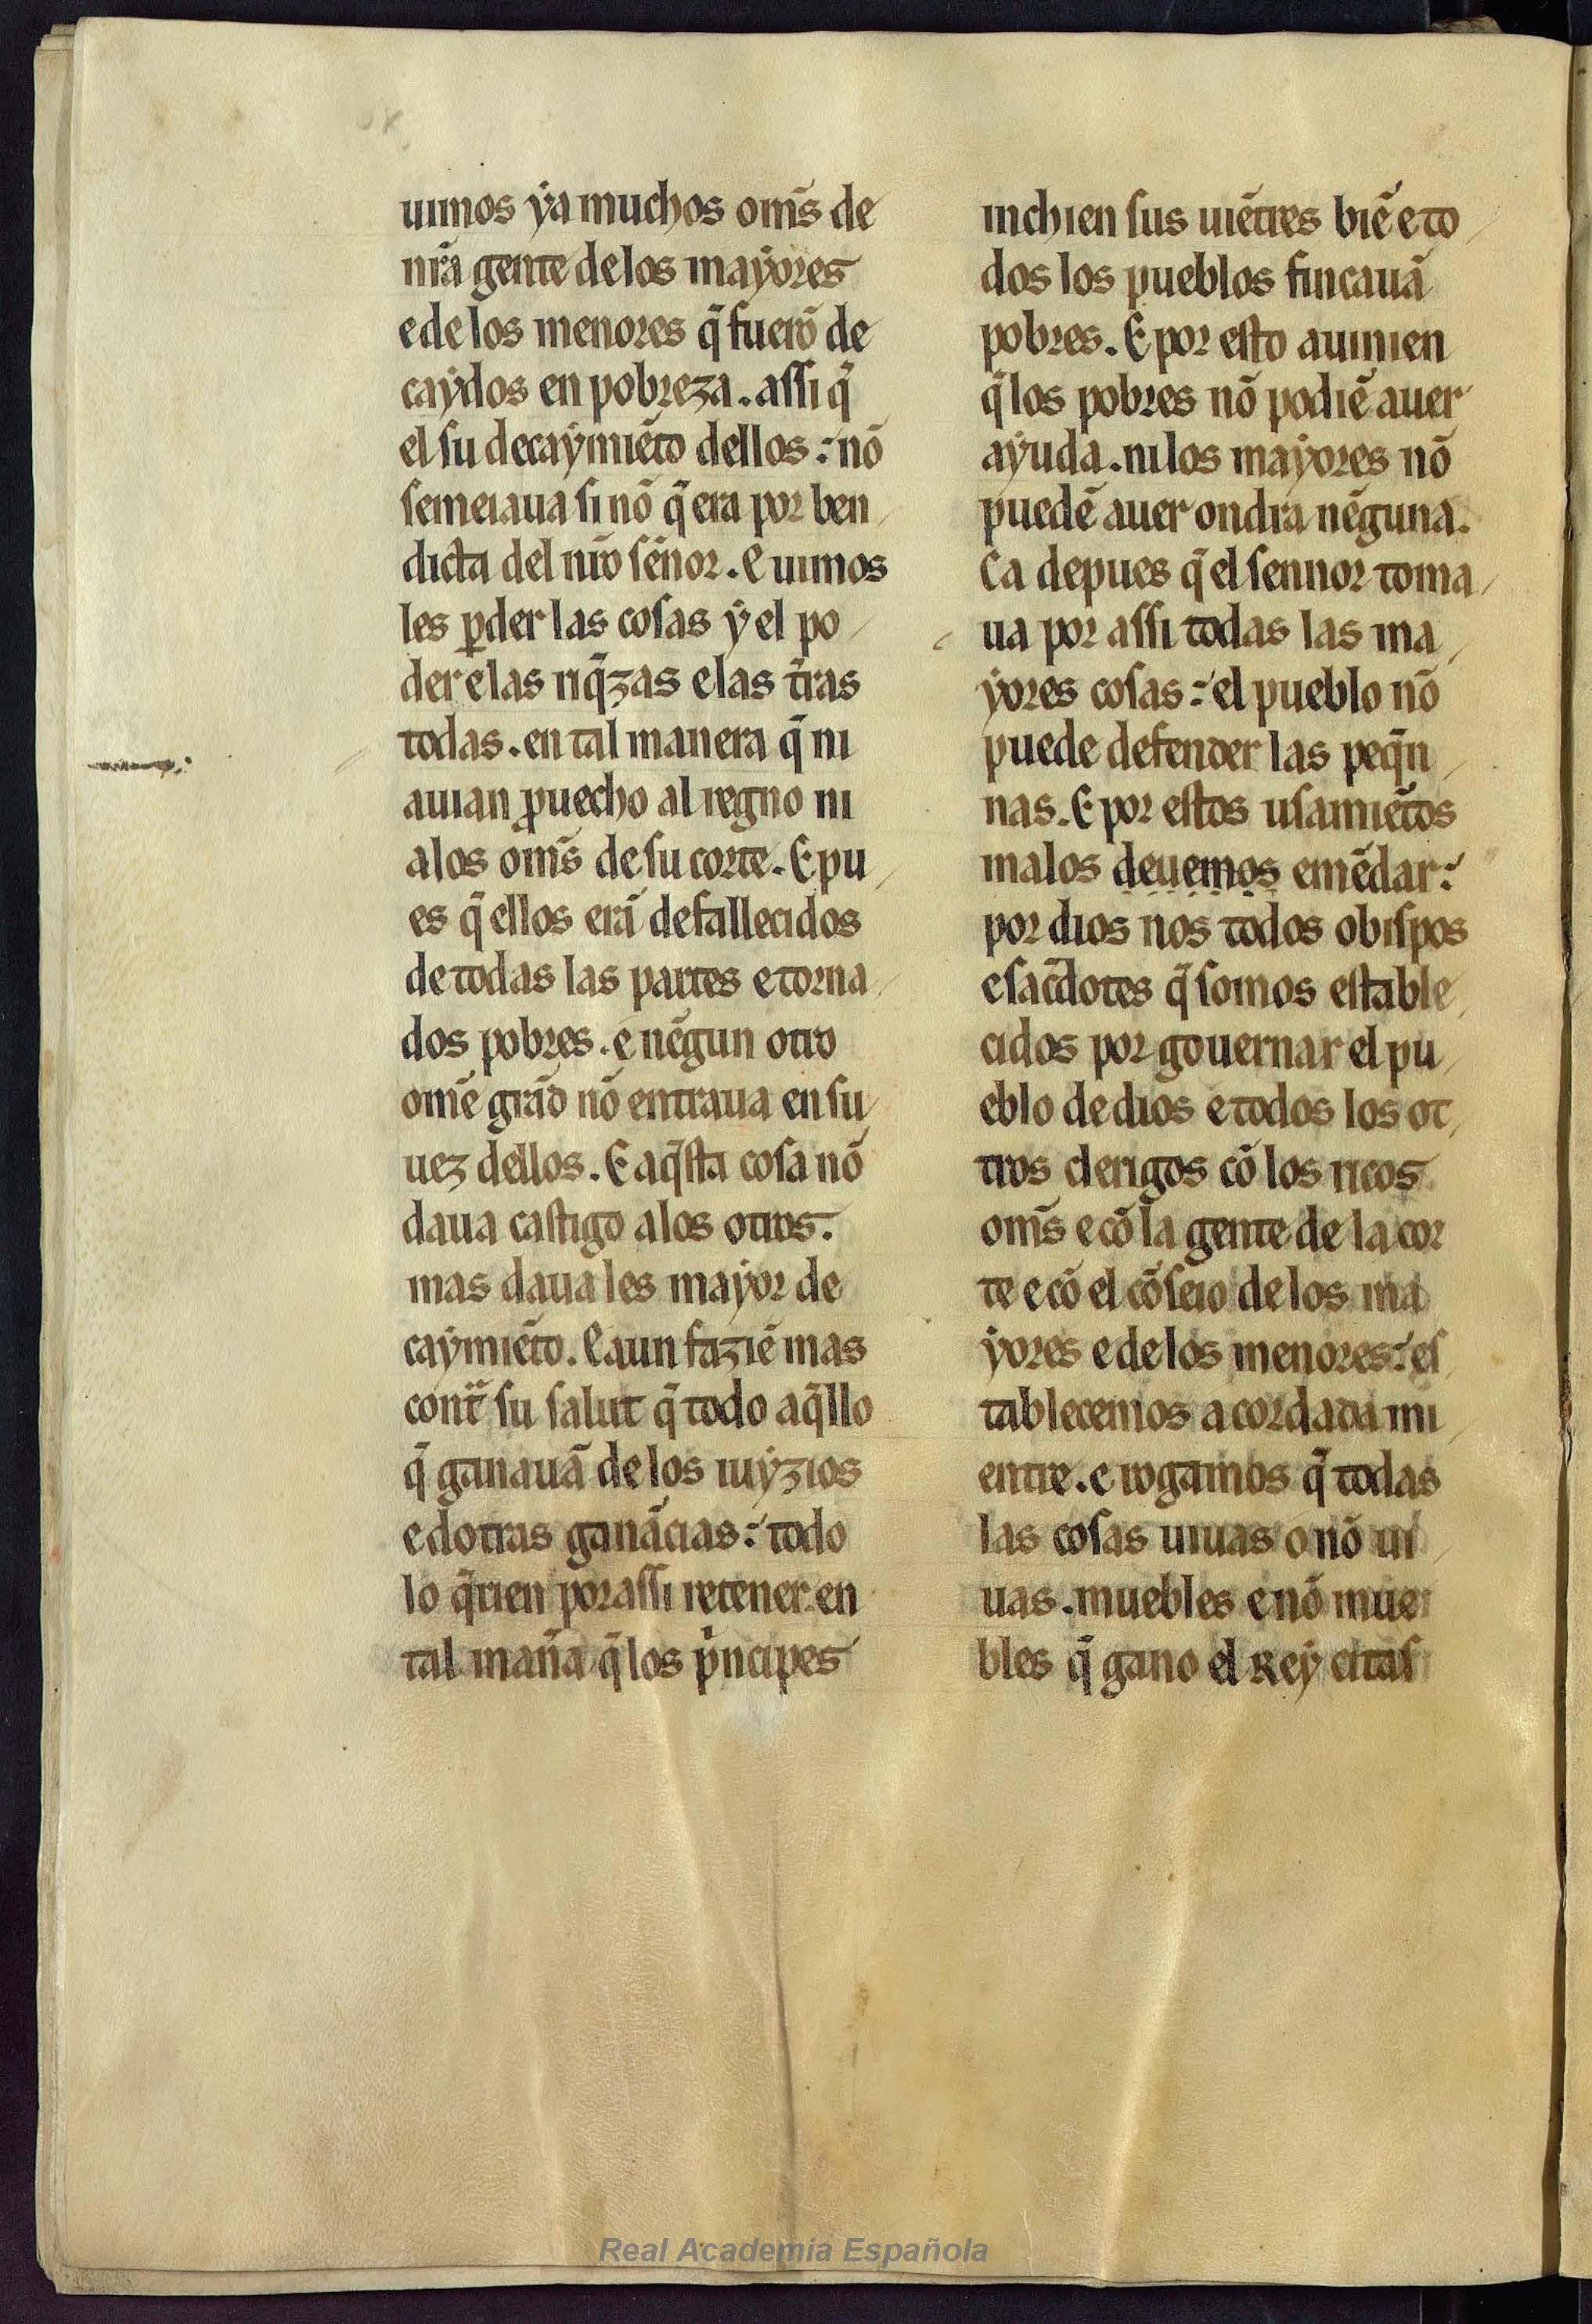 uimos ẏa muchos om̃s de
nr̃a gente delos maẏores
e delos menores q̃ fuerõ de
caẏdos en pobreza. assi q̃
el su decaẏmiẽto dellos: nõ
semeiaua si nõ q̃ era por ben
dicta del nr̃o sẽnor. E uimos
les ꝑder las cosas ẏ el po
der e las riq̃zas e las tr̃as
todas. en tal manera q̃ ni
auian ꝓuecho al regno ni
alos om̃s de su corte. E pu
es q̃ ellos erã defallecidos
de todas las partes e torna
dos pobres. e nẽgun otro
om̃e grãd nõ entraua en su
uez dellos. E aq̃sta cosa nõ
daua castigo alos otros.
mas daua les maẏor de
caẏmiẽto. E aun faziẽ mas
contr̃ su salut q̃ todo aq̃llo
q̃ ganauã de los iuẏzios
e dotras ganãcias: todo
lo q̃rien por assi retener. en
tal mañã q̃ los pͥncipes
inchien sus uiẽtres biẽ e to
dos los pueblos fincauã
pobres. E por esto auinien
q̃ los pobres nõ podiẽ auer
aẏuda. ni los maẏores nõ
puedẽ auer ondra nẽguna.
Ca depues q̃ el sennor toma
ua por assi todas las ma
ẏores cosas: el pueblo nõ
puede defender las peq̃n
nas. E por estos usamiẽtos
malos deuemos emẽdar:
por dios nos todos obispos
e sac̃dotes q̃ somos estable
cidos por gouernar el pu
eblo de dios e todos los ot
tros clerigos cõ los ricos
om̃s e cõ la gente de la cor
te e cõ el cõseio de los ma
ẏores e de los menores: es
tablecemos acordada mi
entre. e rogamos q̃ todas
las cosas uiuas o nõ ui
uas. muebles e nõ mue
bles q̃ gano el Reẏ citas
Real Academia Española